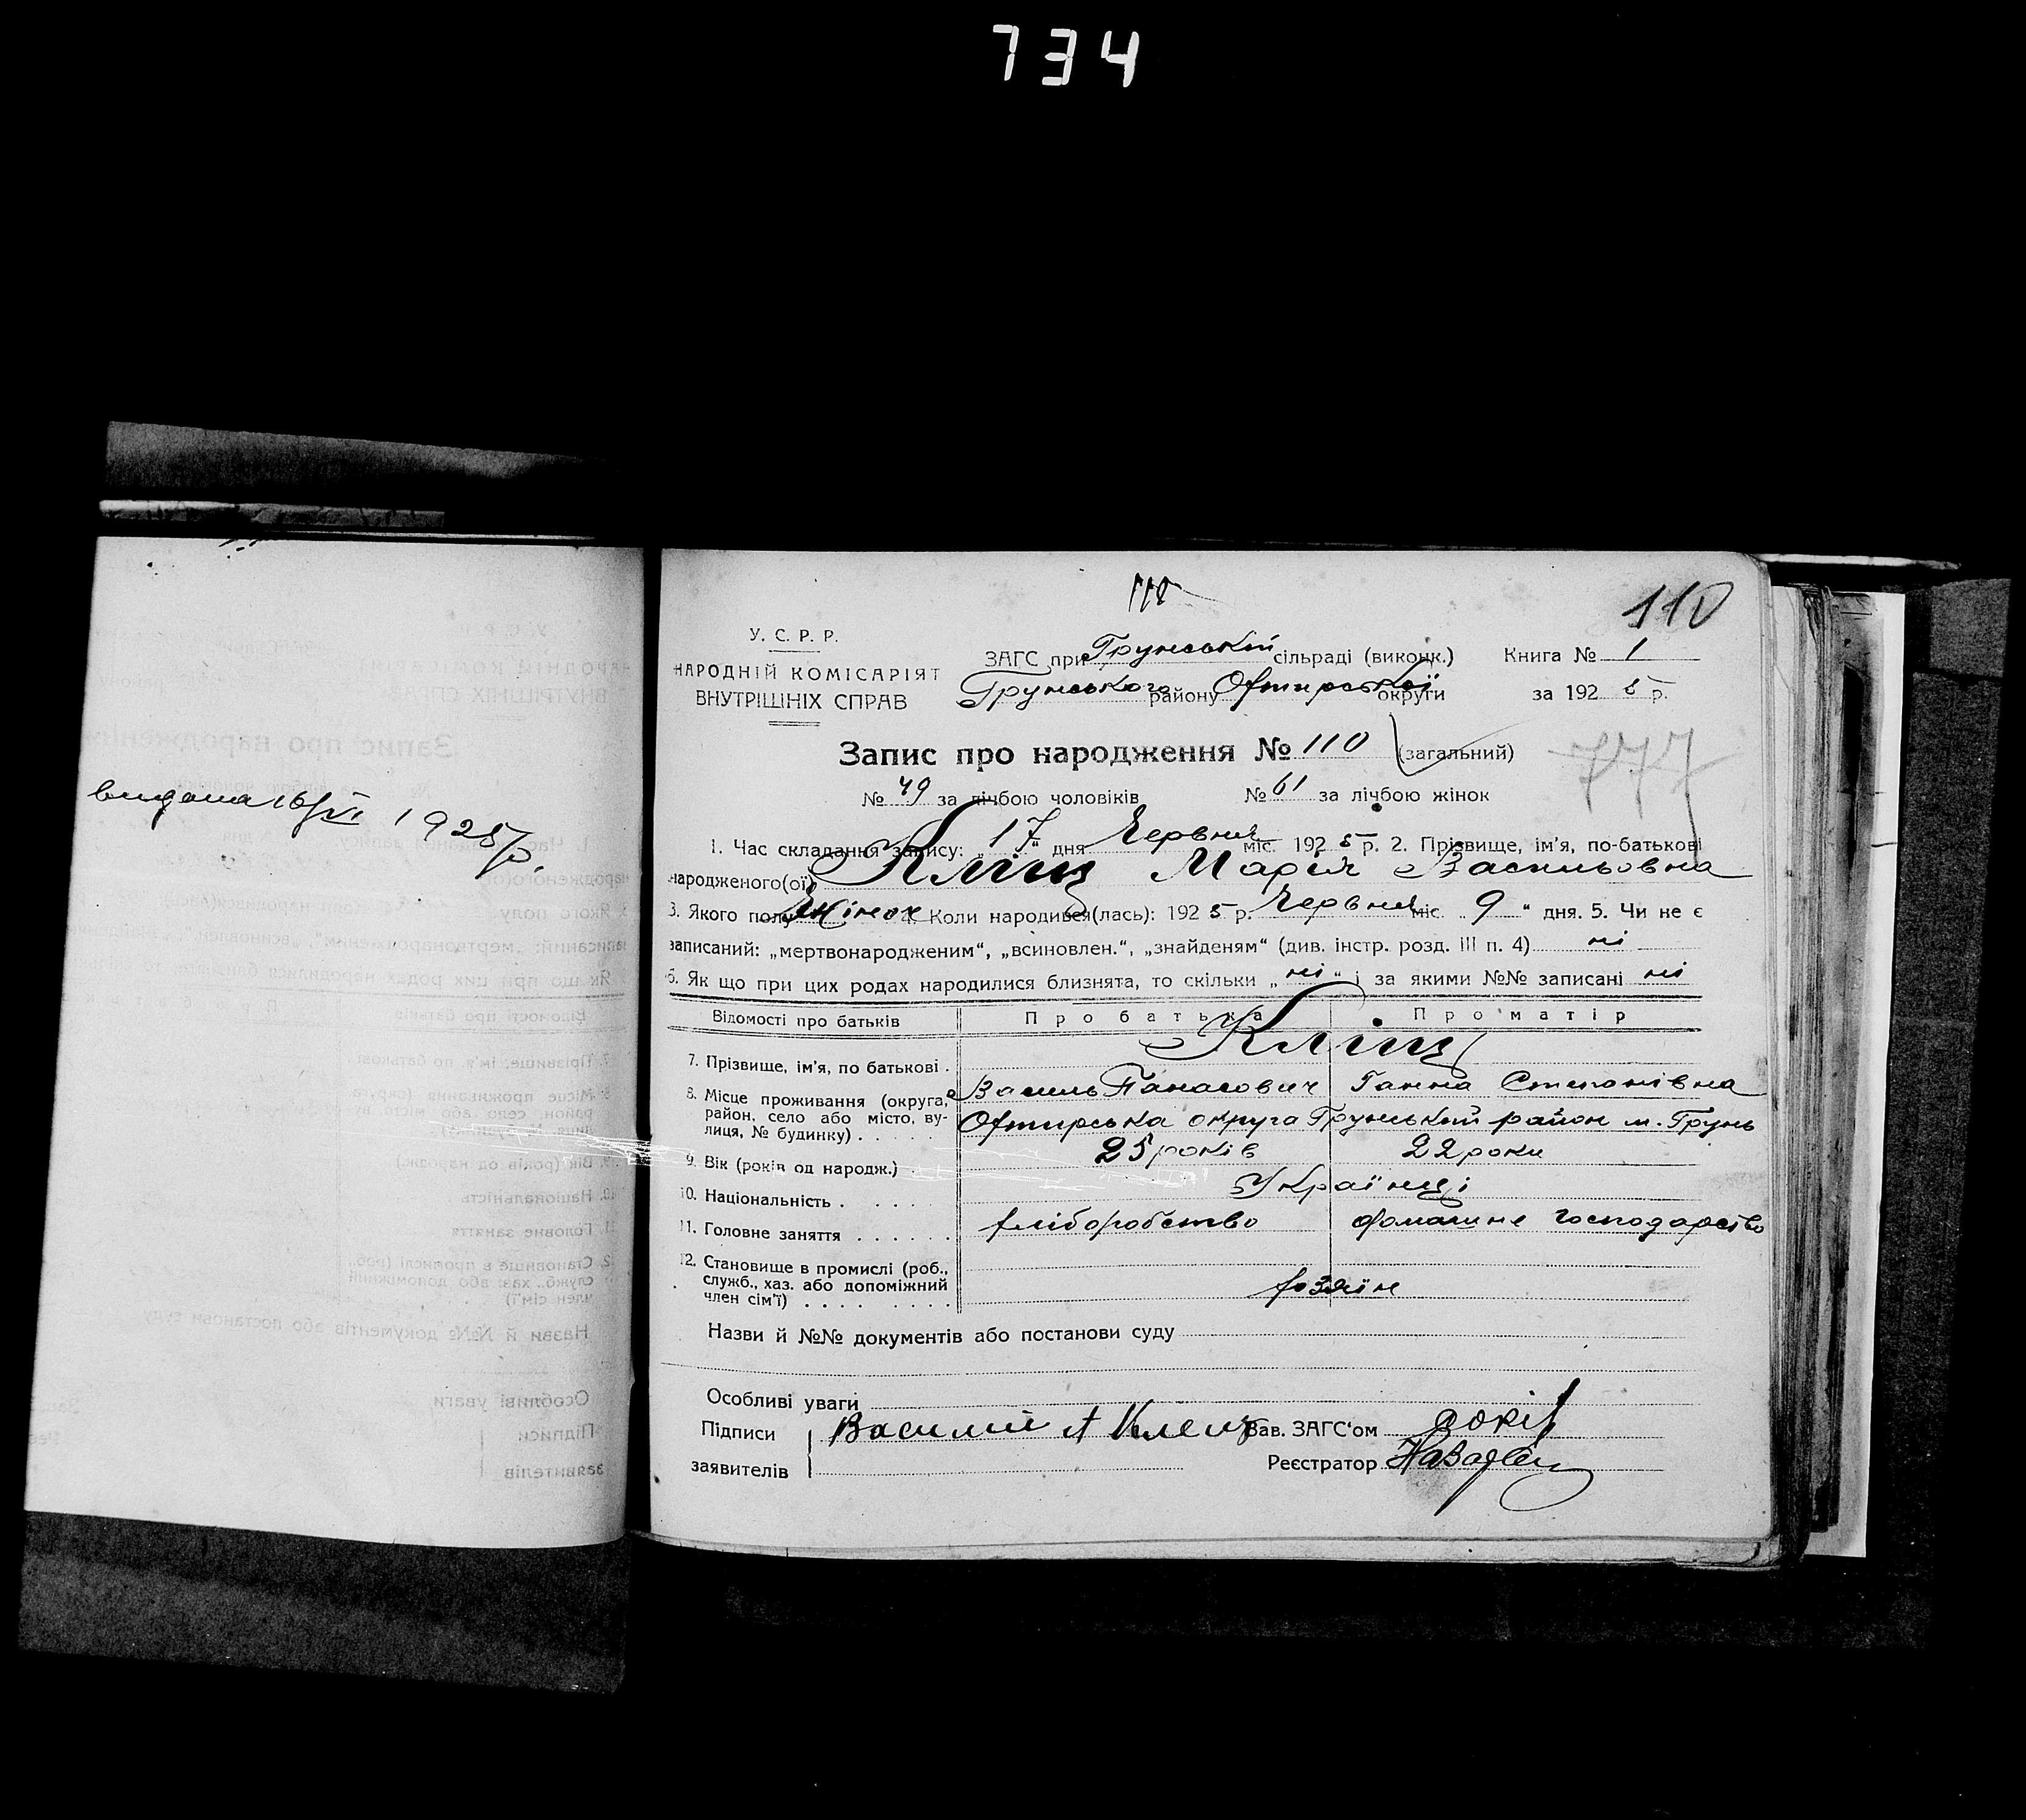 734
видана 16/VI 1925 р.
110
У. С. Р. Р.
НАРОДНІЙ КОМІСАРІЯТ
ВНУТРІШНІХ СПРАВ
ЗАГС при Грунській сільраді (виконк.) Книга № 1
Грунського району Охтирської округи за 1925 р.
Запис про народження № 110 (загальний)
777
№ 49 за лічбою чоловіків № 61 за лічбою жінок
1. Час складання запису: „17“ дня Червня міс. 1925 р. 2. Прізвище, ім'я, по-батькові
народженого(ої) Кліщ Марія Васильовна
3. Якого полу Жіноч 4. Коли народився(лась): 1925 р. Червня міс. „9“ дня. 5. Чи не є
записаний: „мертвонародженим“, „всиновлен.“, „знайденям“ (див. інстр. розд. III п. 4) ні
6. Як що при цих родах народилися близнята, то скільки „ні“ і за якими №№ записані ні
Відомості про батьків Про батька Про матір
7. Прізвище, ім'я, по батькові . Кліщ
Василь Панасович Ганна Степанівна
8. Місце проживання (округа, район, село або місто, ву-
лиця, № будинку) . . . . . Охтирська округа Грунський район м. Грунь
9. Вік (років од народж.) . 25 років 22 роки
10. Національність . . . . . Українці
11. Головне заняття . . . . . . хліборобство домашнє господарство
12. Становище в промислі (роб.,
служб., хаз. або допоміжний
член сім'ї) . . . . . . . . хозяїн
Назви й №№ документів або постанови суду
Особливі уваги
Підписи Василий А Клещ Вав. ЗАГС'ом
заявителів Реєстратор